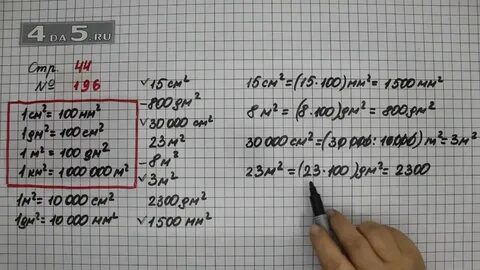 4DA5.RU
Стр. 44
№ 196
1 см² = 100 мм²
1 дм² = 100 см²
1 м² = 100 дм²
1 км² = 1000 000 м²
1 м² = 10 000 см²
1 дм² = 10 000 мм²
√ 15 см²
800 дм²
√ 30 000 см²
23 м²
8 м²
√ 3 м²
2300 дм²
√ 1500 мм²
15 см² = (15 · 100) мм² = 1500 мм²
8 м² = (8 · 100) дм² = 800 дм²
30 000 см² = (30 000 : 10 000) м² = 3 м²
23 м² = (23 · 100) дм² = 2300